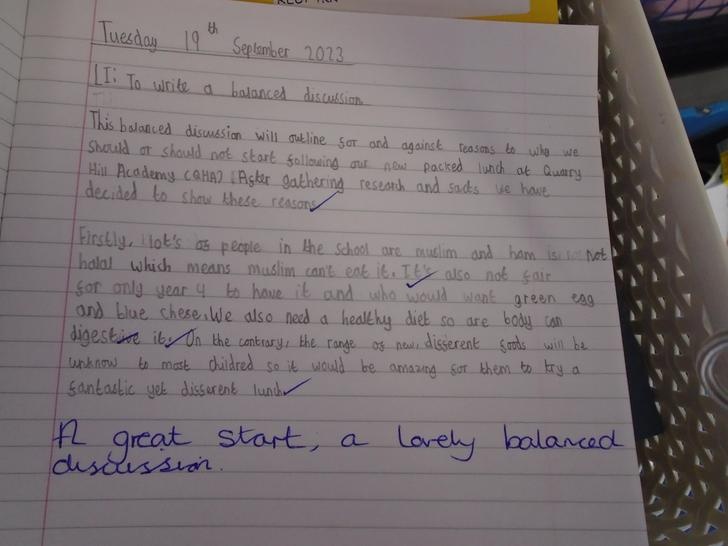 Tuesday 19th September 2023
LI: To write a balanced discussion
This balanced discussion will outline for and against reasons to why we
should or should not start following our new packed lunch at Quarry
Hill Academy (QHA). After gathering research and facts we have
decided to show these reasons
Firstly, lot's of people in the school are muslim and ham is not
halal which means muslim can't eat it. It's also not fair
for only year 4 to have it and who would want green egg
and blue chese. We also need a healthy diet so are body can
digestive it. On the contrary, the range of new, different foods will be
unknow to most childred so it would be amazing for them to try a
fantastic yet different lunch
A great start, a lovely balanced
discussion.